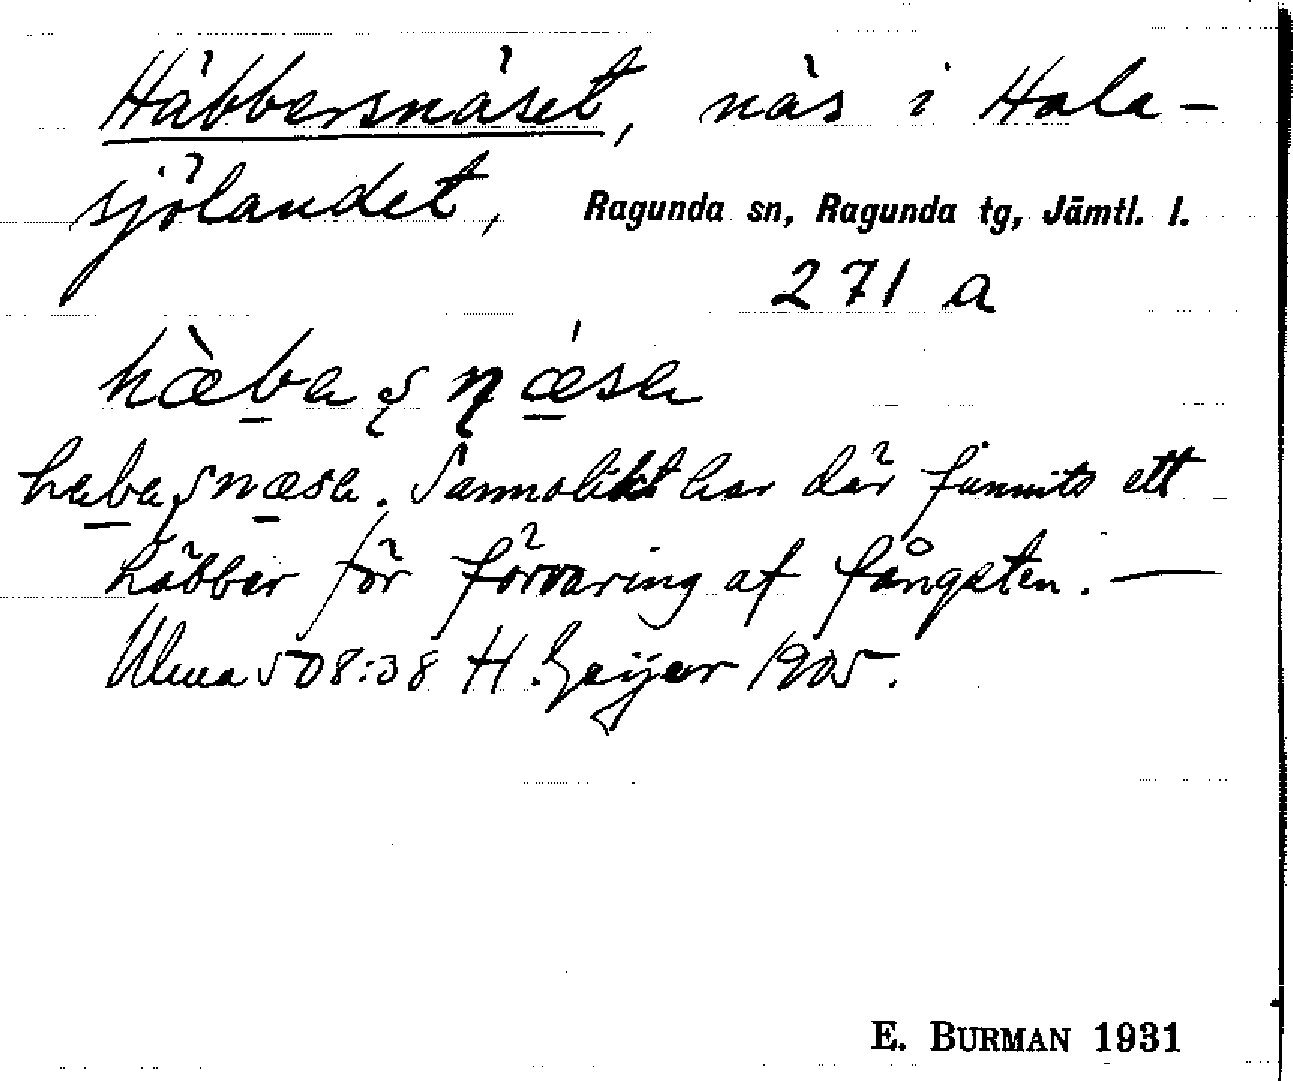 Häbbersnäset, näs i Hole-
sjölandet, Ragunda sn, Ragunda tg, Jämtl. l.
271 a
hæbaṣṇæsa
hebaṣnæsa. Sannolikt har där funnits ett
häbber för förvaring af fångsten. —
Ulma 508:38 H. Geijer 1905.
E. BURMAN 1931